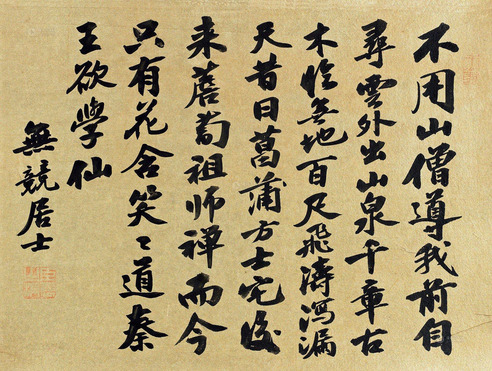 不用山僧導我前自
尋雲外出山泉千章古
木臨無地百尺飛濤瀉漏
天昔日菖蒲方士宅後
来薝蔔祖師禅而今
只有花含笑〻道秦
王欲學仙
無競居士